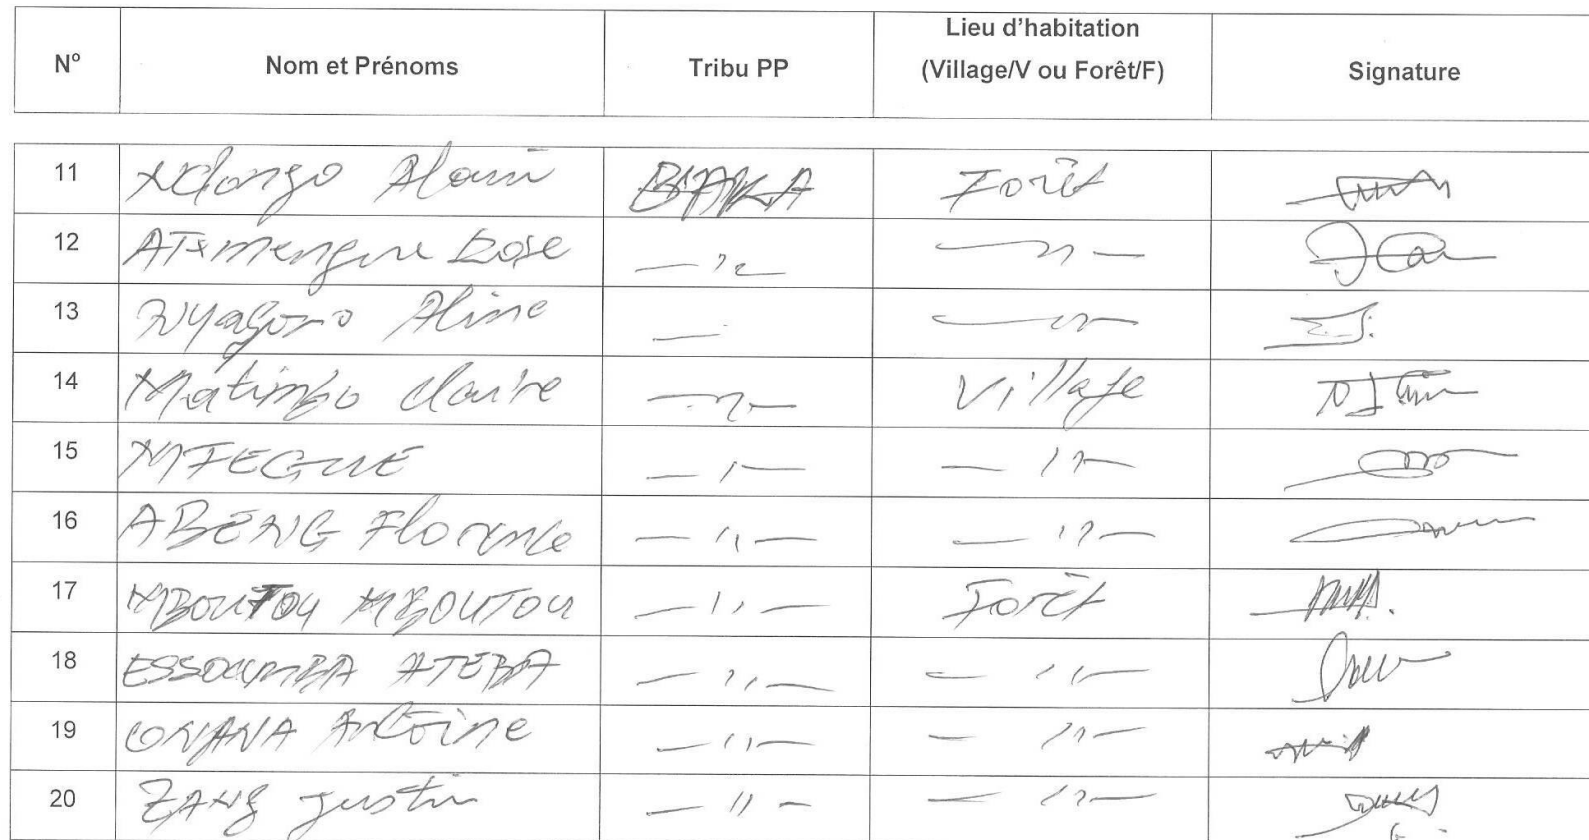 N° Nom et Prénoms Tribu PP Lieu d'habitation (Village/V ou Forêt/F) Signature
11 Ndongo Alain BAKA Forêt
12 Rose — " — — " —
13 Nyagono Aline — — " —
14 Matimbo Claire — " — Village
15 MFEGUE — " — — " —
16 ABENG Florence — " — — " —
17 MBOUTOU MBOUTOU — " — Forêt
18 ESSOUMBA ATEBA — " — — " —
19 ONANA Antoine — " — — " —
20 ZANG Justin — " — — " —